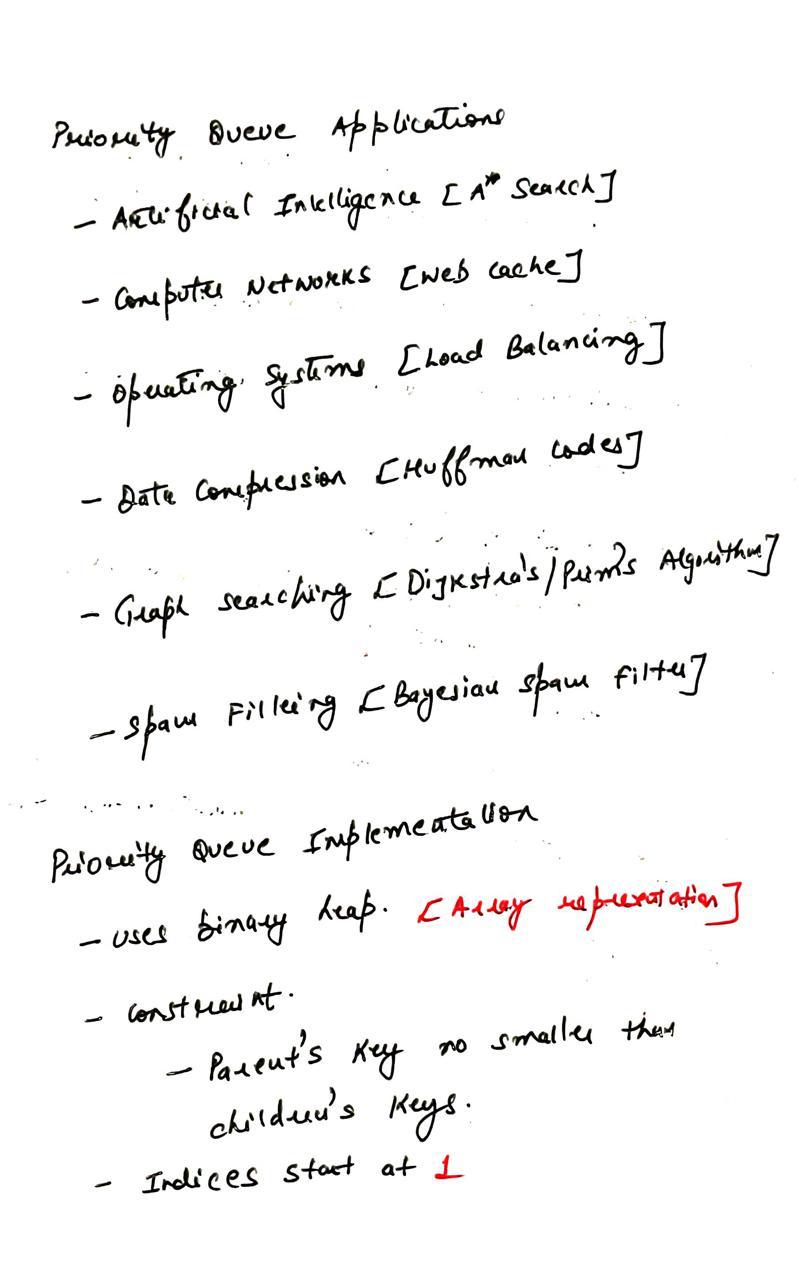 Priority Queue Applications
- Artificial Intelligence [A* Search]
- Computer Networks [Web cache]
- Operating Systems [Load Balancing]
- Data Compression [Huffman codes]
- Graph searching [Dijkstra's/Prim's Algorithm]
- Spam Filtering [Bayesian spam filter]
Priority Queue Implementation
- Uses binary heap. [Array representation]
- Constraint.
- Parent's Key no smaller than
children's Keys.
- Indices start at 1